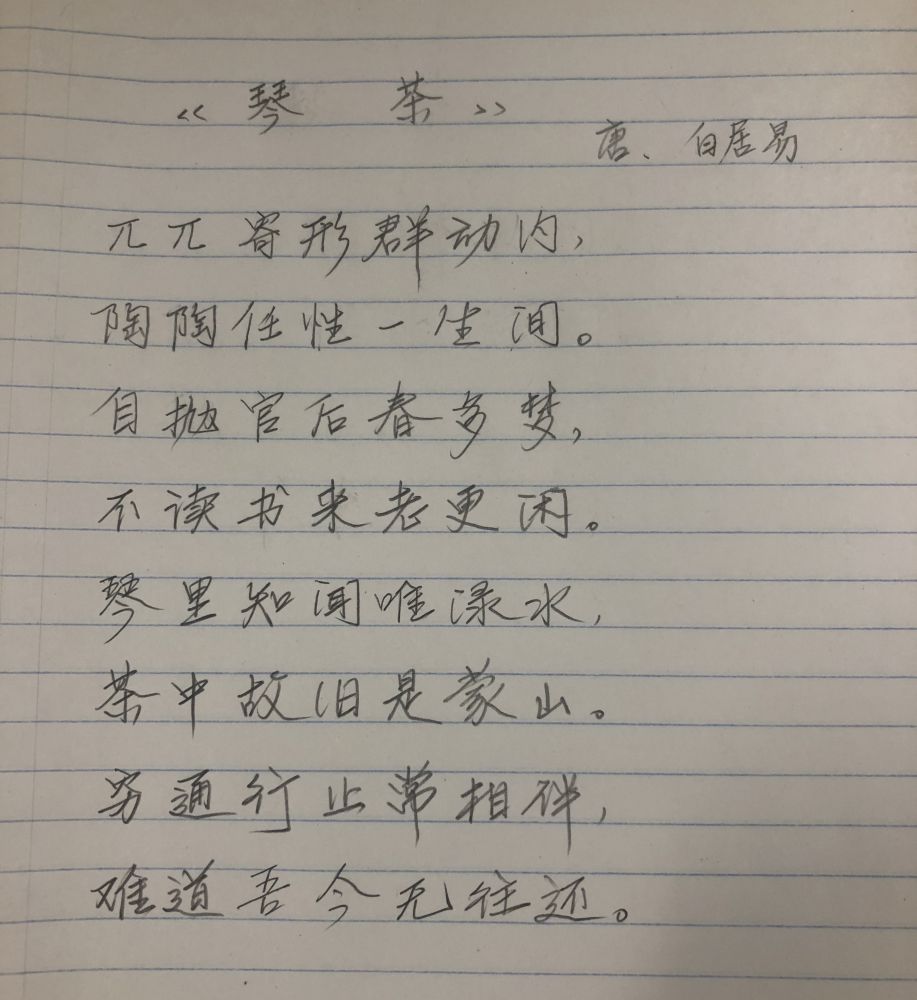 《琴 茶》
唐、白居易
兀兀寄形群动内,
陶陶任性一生间。
自抛官后春多梦,
不读书来老更闲。
琴里知闻唯渌水,
茶中故旧是蒙山。
穷通行止常相伴,
难道吾今无往还。